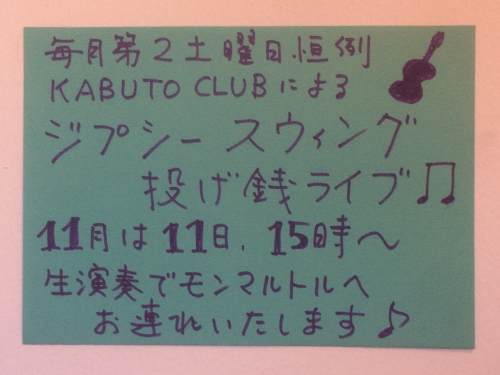 毎月第2土曜日恒例
KABUTO CLUBによる
ジプシー スウィング
投げ銭ライブ♫
11月は11日、15時〜
生演奏でモンマルトルへ
お連れいたします♪